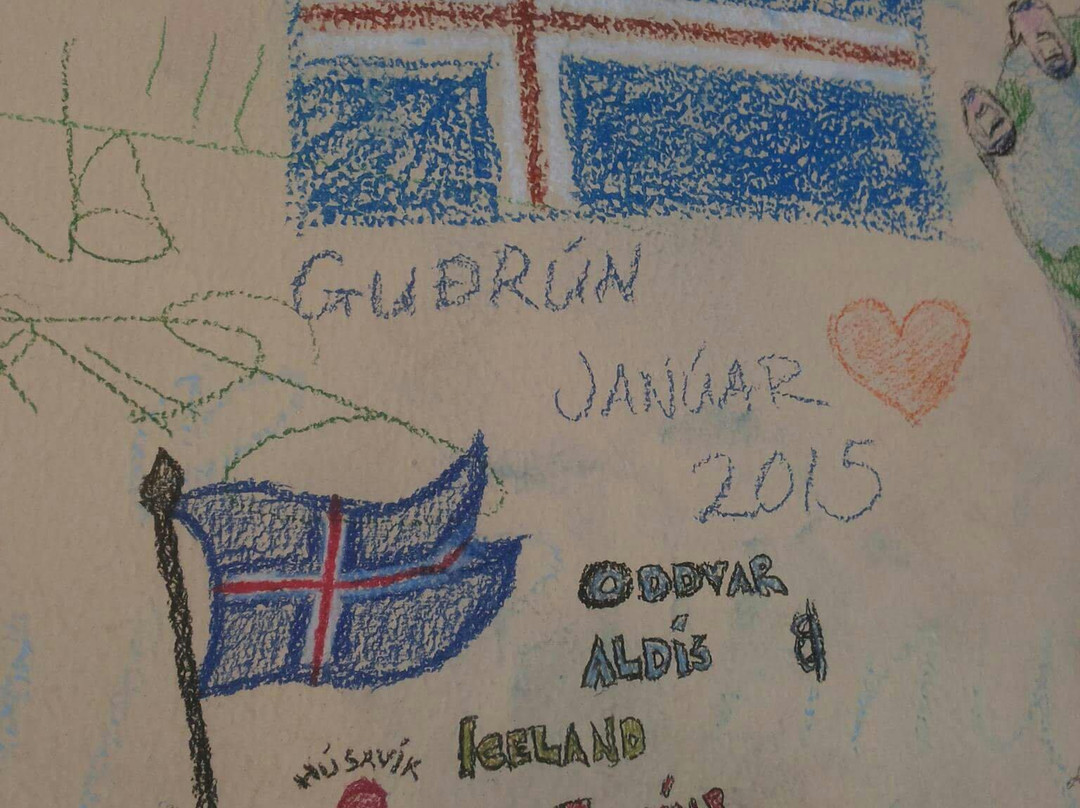 GUÐRÚN
JANÚAR
2015
ODDVAR
ALDÍS &
ICELAND
HÚSAVÍK